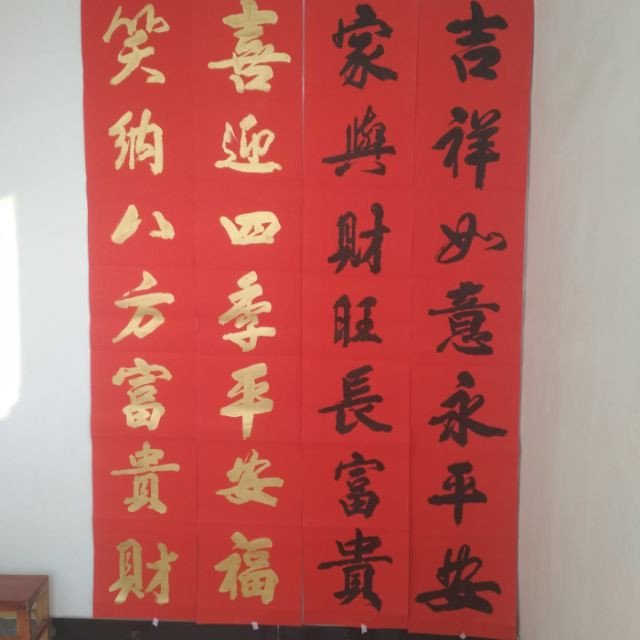 吉祥如意永平安
家與財旺長富貴
喜迎四季平安福
笑纳八方富貴財